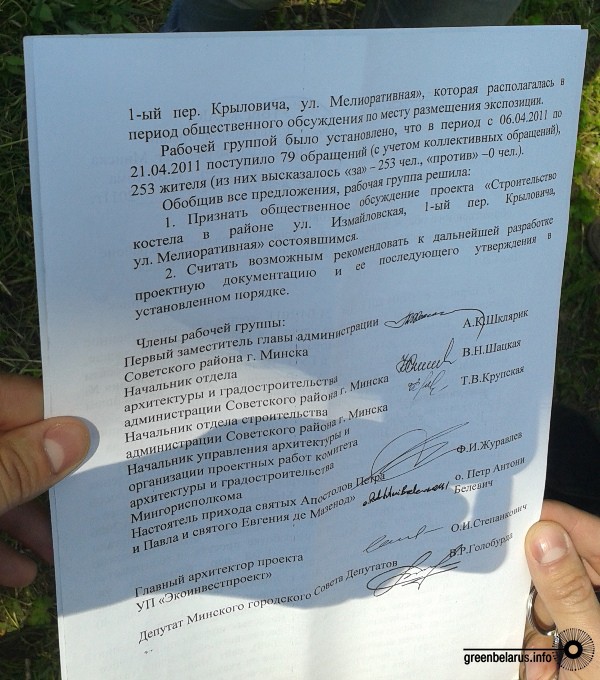 1-ый пер. Крыловича, ул. Мелиоративная», которая располагалась в
период общественного обсуждения по месту размещения экспозиции.
Рабочей группой было установлено, что в период с 06.04.2011 по
21.04.2011 поступило 79 обращений (с учетом коллективных обращений),
253 жителя (из них высказалось «за» – 253 чел., «против» –0 чел.).
Обобщив все предложения, рабочая группа решила:
1. Признать общественное обсуждение проекта «Строительство
костела в районе ул. Измайловская, 1-ый пер. Крыловича,
ул. Мелиоративная» состоявшимся.
2. Считать возможным рекомендовать к дальнейшей разработке
проектную документацию и ее последующего утверждения в
установленном порядке.
Члены рабочей группы:
Первый заместитель главы администрации
Советского района г. Минска
А.К.Шклярик
Начальник отдела
архитектуры и градостроительства
администрации Советского района г. Минска
В.Н.Шацкая
Начальник отдела строительства
администрации Советского района г. Минска
Т.В.Крупская
Начальник управления архитектуры и
организации проектных работ комитета
архитектуры и градостроительства
Мингорисполкома
Ф.И.Журавлев
Настоятель прихода святых Апостолов Петра
и Павла и святого Евгения де Мазенод»
о. Петр Антони
Белевич
Главный архитектор проекта
УП «Экоинвестпроект»
О.И.Степанкович
Депутат Минского городского Совета Депутатов
В.Р.Голобурда
greenbelarus.info